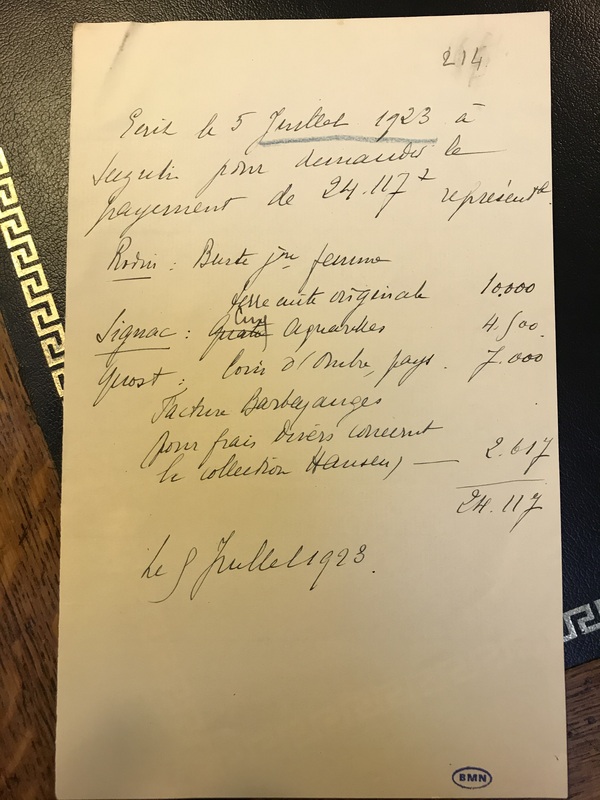 214
Ecrit le 5 Juillet 1923 à
Suzuki pour demander le
payement de 24.117 représentt
Rodin : Buste jne femme
terre cuite originale 10.000
Cinq
Signac : Quatre Aquarelles 4.500
Quost : Coin d'Ombre, pays. 7.000
Facture Barbazanges
pour frais divers concernt
la collection Hansen) — 2.617
24.117
Le 5 Juillet 1923.
BMN